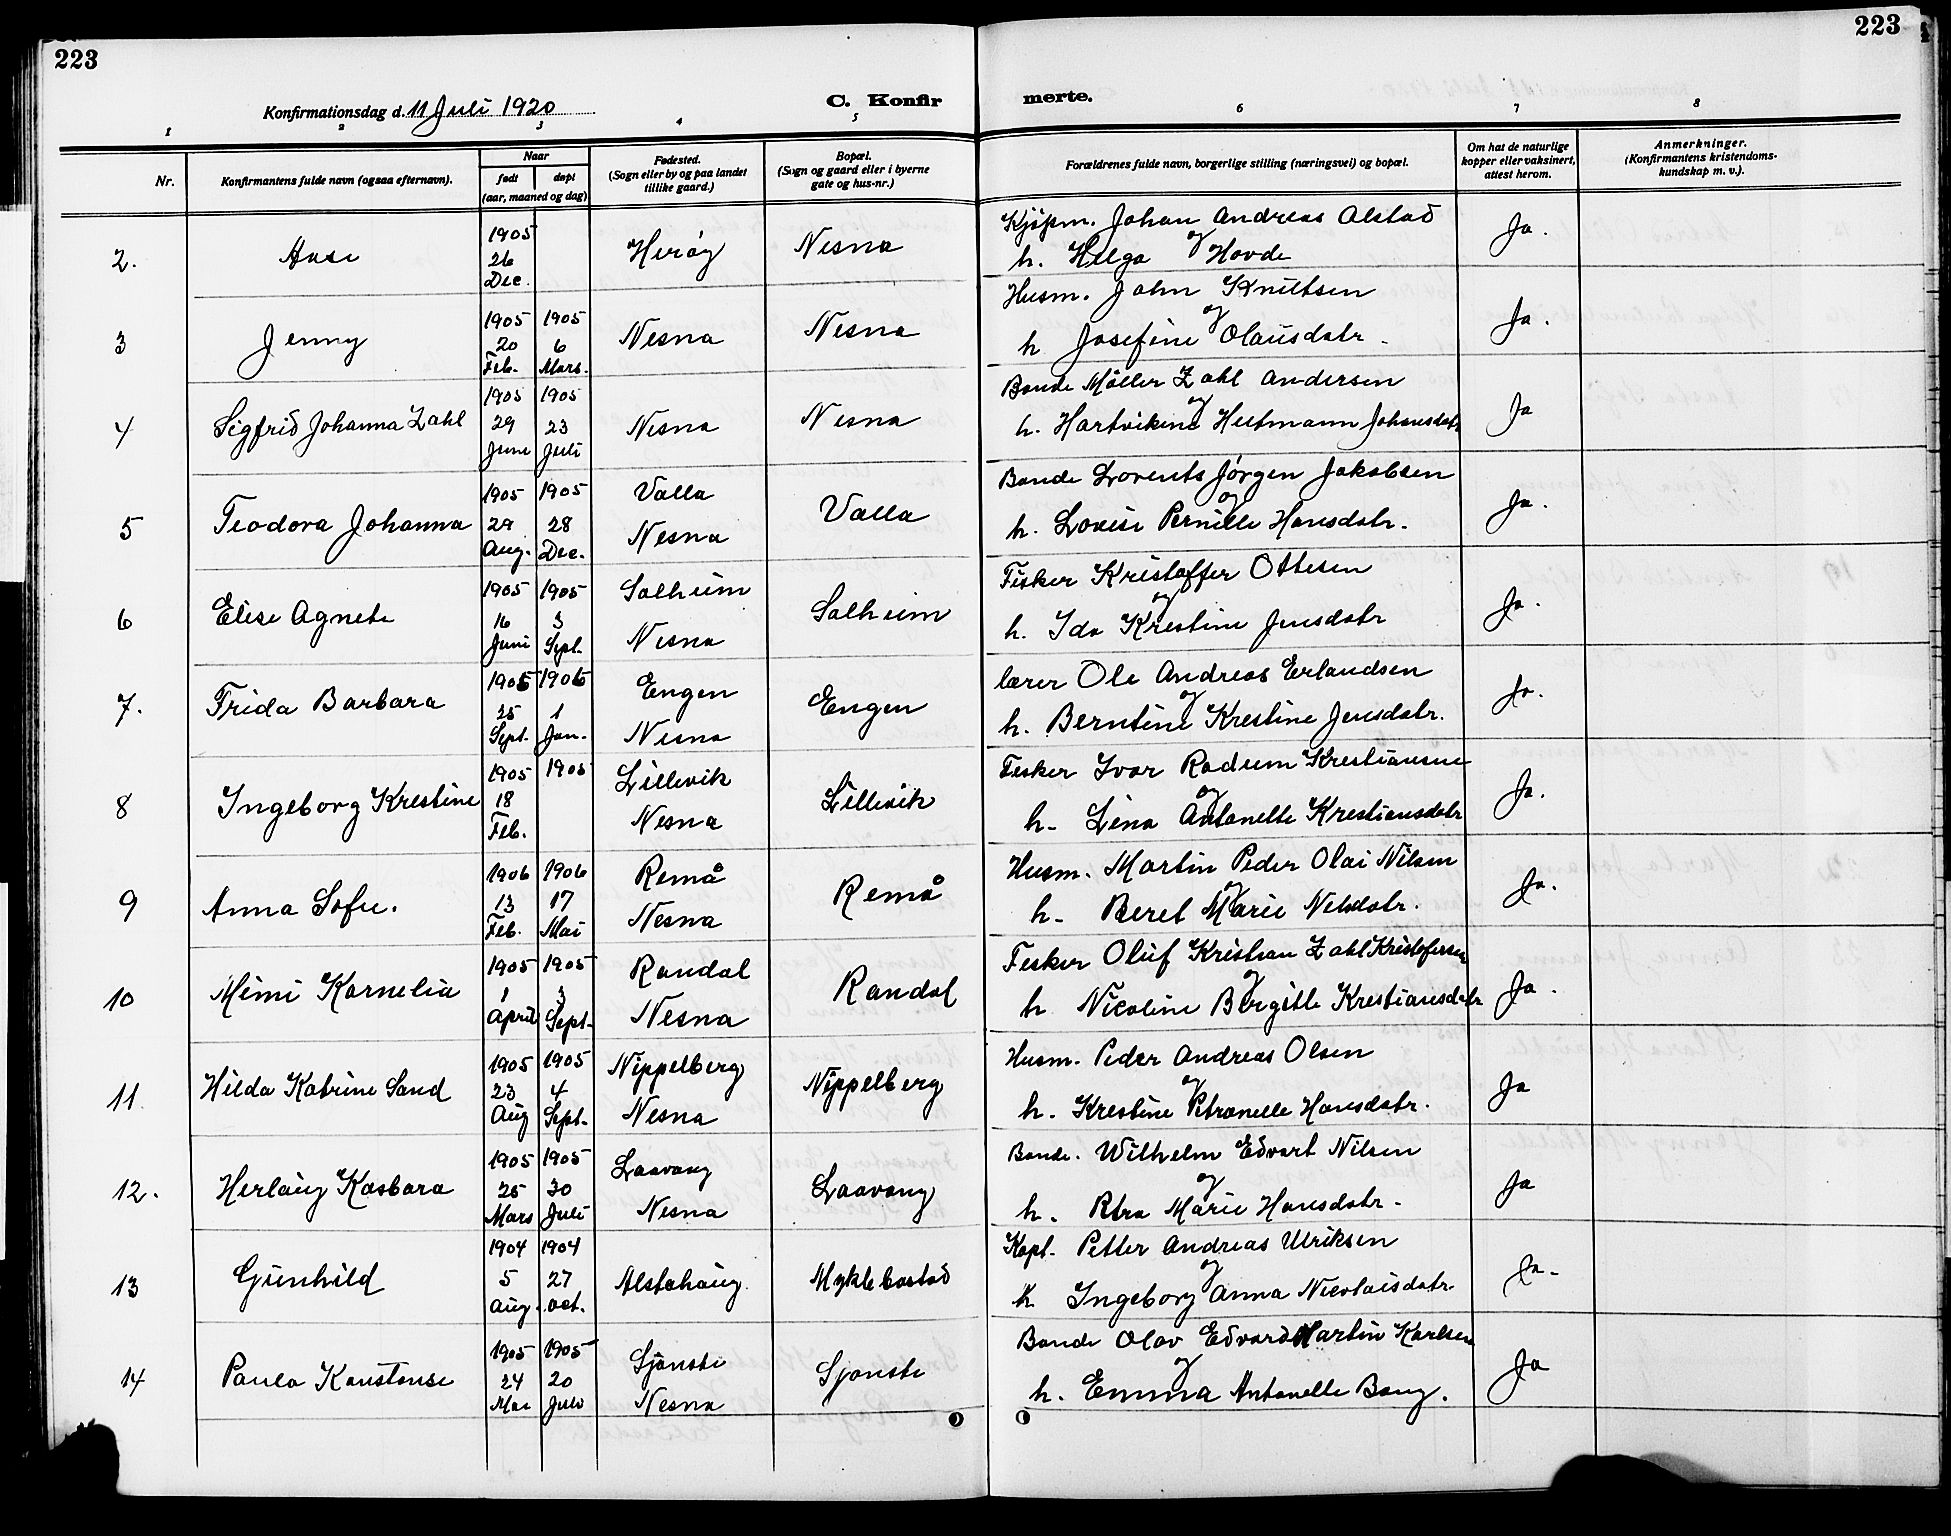 223
223
Konfirmationsdag d. 11 Juli 1920
C. Konfir
merte.
1 2 3 4 5 6 7 8
Nr.
Konfirmantens fulde navn (ogsaa efternavn).
Naar
født
døpt
(aar, maaned og dag)
Fødested.
(Sogn eller by og paa landet
tillike gaard.)
Bopæl.
(Sogn og gaard eller i byerne
gate og hus-nr.)
Forældrenes fulde navn, borgerlige stilling (næringsvei) og bopæl.
Om hat de naturlige
kopper eller vaksinert,
attest herom.
Anmerkninger.
(Konfirmantens kristendoms-
kundskap m. v.).
2. Aase 1905 26 Dec. Herøy Nesna
Kjøpm. Johan Andreas Alstad
og
h. Helga Hovde
Ja.
3 Jenny 1905 20 Feb. 1905 6 Mars. Nesna Nesna
Husm. John Knutsen
og
h Josefine Olausdatr.
Ja.
4 Sigfrid Johanna Zahl 1905 29 Juni 1905 23 Juli Nesna Nesna
Bonde Møller Zahl Andersen
og
h. Hartvikine Hutmann Johansdatr
Ja
5 Teodora Johanna 1905 29 Aug. 1905 28 Dec. Valla Nesna Valla
Bonde Lorents Jørgen Jakobsen
og
h. Lovise Pernille Hansdatr.
Ja.
6 Elise Agnete 1905 16 Juni 1905 3 Sept. Solheim Nesna Solheim
Fisker Kristoffer Ottesen
og
h. Ida Krestine Jensdatr
Ja.
7. Frida Barbara 1905 25 Sept. 1906 1 Jan. Engen Nesna Engen
lærer Ole Andreas Erlandsen
og
h. Berntine Krestine Jensdatr.
Ja.
8 Ingeborg Krestine 1905 18 Feb. 1905 Lillevik Nesna Lillevik
Fesker Ivar Radum Krestiansen
og
h. Lina Antonette Krestiansdatr
Ja.
9 Anna Sofie. 1906 13 Feb. 1906 17 Mai Remå Nesna Remå
Husm. Martin Peder Olai Nilsen
og
h. Beret Marie Nelsdatr.
Ja.
10 Mimi Kornelia 1905 1 April 1905 3 Sept. Randal Nesna Randal
Fesker Oluf Kristian Zahl Kristofersen
og
h Nicoline Bergitte Krestiansdatr
Ja.
11. Hilda Katrine Sand 1905 23 Aug 1905 4 Sept. Nippelberg Nesna Nippelberg
Husm. Peder Andreas Olsen
og
h. Krestine Petronelle Hansdatr.
Ja
12. Herlaug Kasbara 1905 25 Mars 1905 30 Juli Laavong Nesna Laavong
Bonde. Wilhelm Edvart Nilsen
og
h. Petra Marie Hansdatr.
Ja
13 Gunhild 1904 5 Aug. 1904 27 oct. Alstahaug. Myklebostad
Kapt. Petter Andreas Ulriksen
og
h. Ingeborg Anna Nicolaisdatr.
Ja.
14 Paula Konstanse 1905 24 Mai 1905 20 Juli Sjønste Nesna Sjonste
Bonde Olav Edvard Martin Karlsen
og
h. Emma Antonette Bang.
Ja